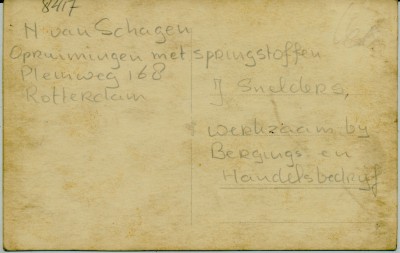 8417
N van Schagen
Opruimingen met springstoffen
Pleinweg 168
Rotterdam
IJ Snelders,
werkzaam by
Bergings en
Handelsbedryf